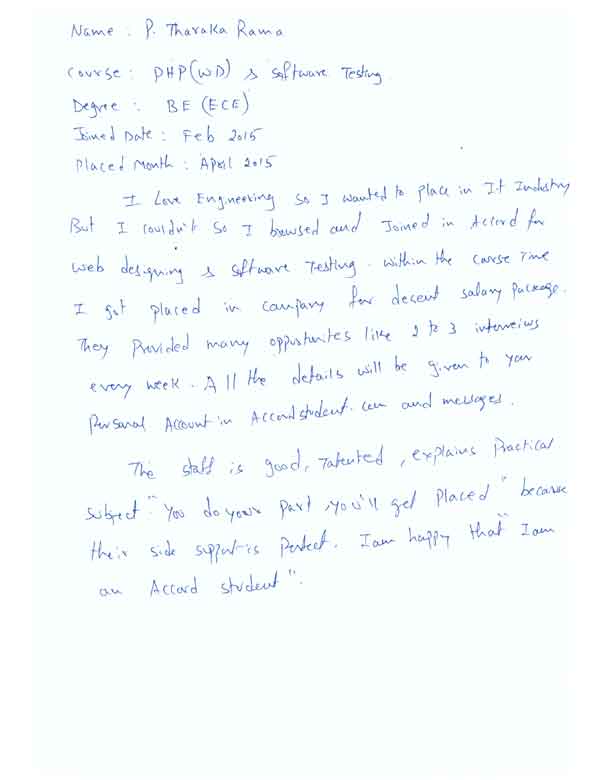 Name : P. Tharaka Rama
Course : PHP(WD) & Software Testing
Degree : BE (ECE)
Joined Date : Feb 2015
Placed Month : April 2015
I Love Engineering so I wanted to place in I.t Industry
But I couldn't so I browsed and Joined in Accord for
web designing & software Testing. within the course Time
I got placed in company for decent salary package.
They Provided many opportunites like 2 to 3 interveiws
every week. All the details will be given to your
Personal Account in Accordstudent.com and messages.
The staff is good, Talented, explains Practical
subject "You do your part, you'll get Placed" because
their side support is Perfect. I am happy that "I am
an Accord student".